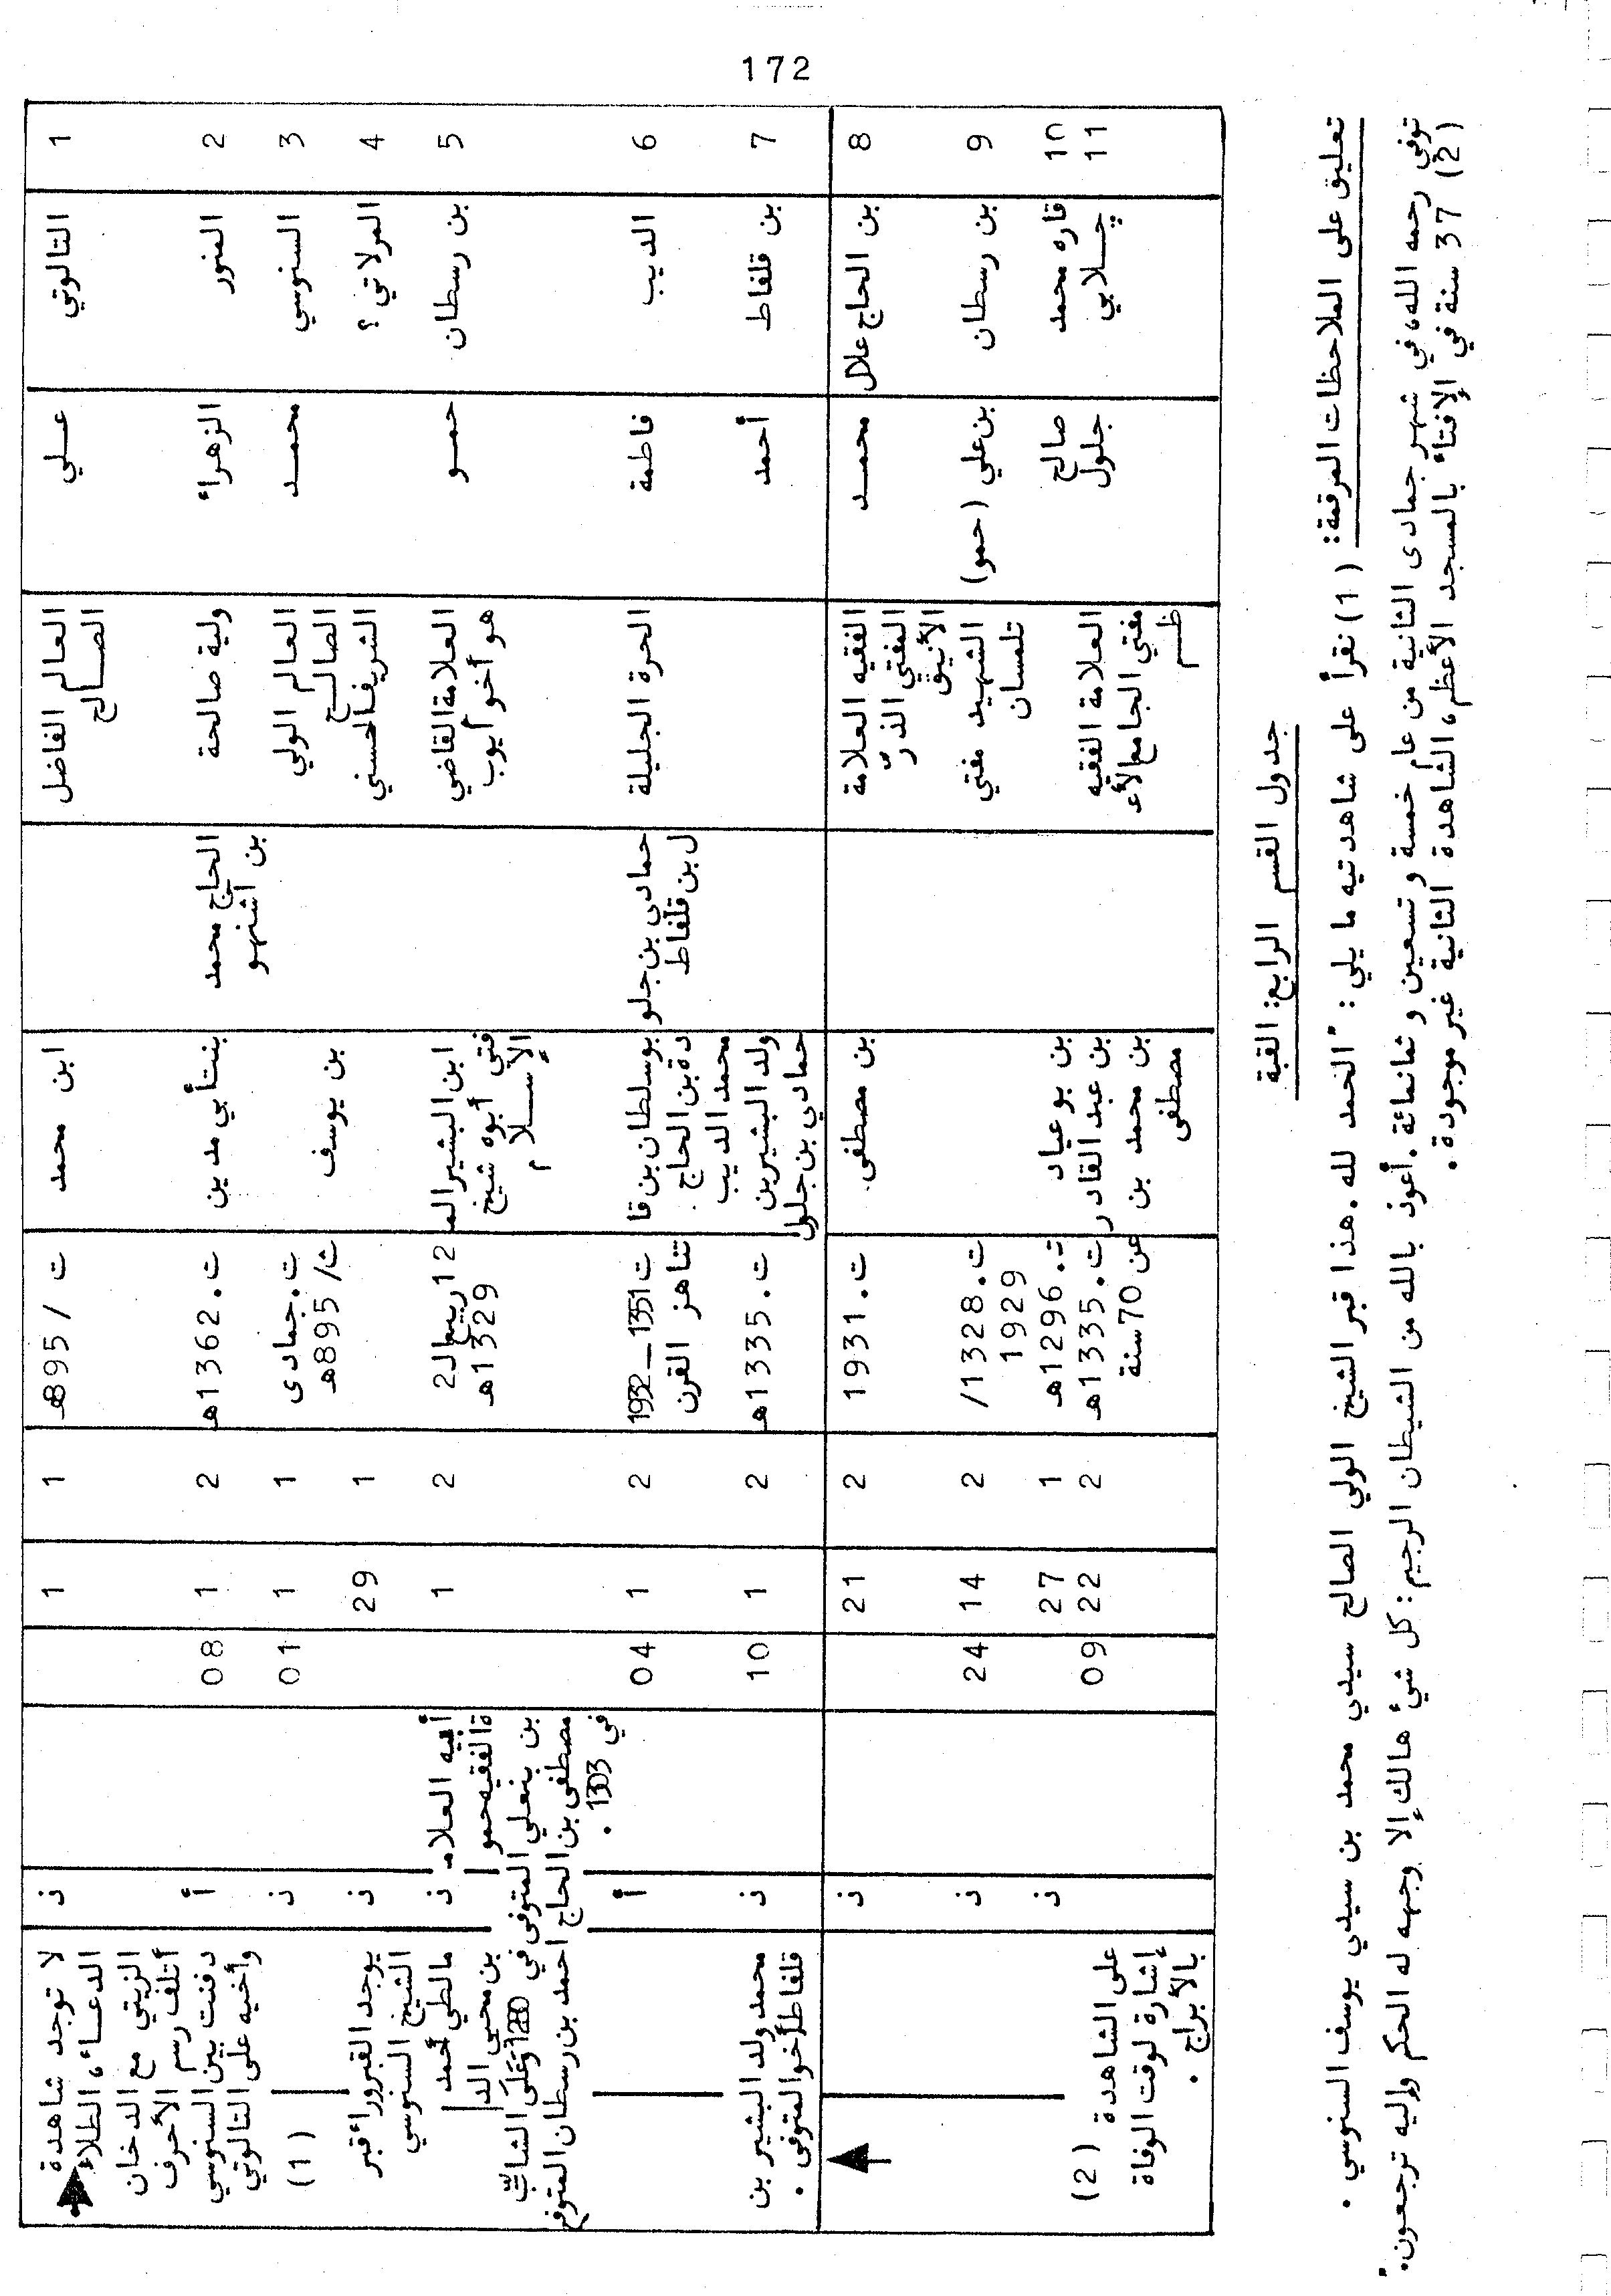 172
1 التالوتي عـلي العالم الفاضل الصـالح ابن محمد ت / 895هـ 1 1 ن لا توجد شاهدة
الدعـاء، الطلاء
الزيتي مع الدخان
أتلف رسم الأحرف
2 المنور الزهراء ولية صالحة الحاج محمد بن أشنهو بنت أبي مدين ت. 1362هـ 2 1 08 أ دفنت بين السنوسي
وأخيه على التالوتي
3 السنوسي محمـد العالم الولي الصالح بن يوسف ت. جمادى ث/ 895هـ 1 1 01 ن (1)
4 المرلاتي ؟ الشريف الحسني 1 29 ن يوجد القبر وراء قبر
الشيخ السنوسي
5 بن رسطان حمـو العلامة القاضي
هو أخو أيوب
ابن البشير الم
فتي أبوه شيخ
الإسـلام
12 ربيع الـ2
1329هـ
2 1
أبيه العلامـ
ة الفقيه حمو
بن بنعلي المتوفى في
مصطفى بن الحاج احمد بن رسطان المتوفى
في 1303 .
ن مالطي أحمد
بن محي الد
1280 وعلى الشاب
6 الديب فاطمة الحرة الجليلة
حمادي بن جلو
ل بن قلفاط
بوسلطان بن قا
دة بن الحاج
محمد الديب
ت 1351 – 1932
تناهز القرن
2 1 04 أ
7 بن قلفاط أحمد
ولد البشير بن
حمادي بن جلول
ت. 1335هـ 2 1 10 ن
محمد ولد البشير بن
قلفاط أخو المتوفى .
8 بن الحاج علال محمـد
الفقيه العلامة
المفتي الذرّ
الأنيق
بن مصطفى ت. 1931 2 21 ن
9 بن رسطان بن علي (حمو)
الشهيد مفتي
تلمسان
ت. 1328/
1929
2 14 24 ن
10 قاره محمد صالح بن بوعياد ت. 1296هـ 1 27 ن
11 چـلابي جلول
العلامة الفقيه
مفتي الجامع الأعـ
ظـم
بن عبد القادر
بن محمد بن
مصطفى
ت. 1335هـ
عن 70 سنة
2 22 09
(2) على الشاهدة
إشارة لوقت الوفاة
بالأبراج .
جدول القسم الرابع: القبة
تعليق على الملاحظات المرقمة: (1) نقرأ على شاهدتيه ما يلي : "الحمد لله . هذا قبر الشيخ الولي الصالح سيدي محمد بن سيدي يوسف السنوسي .
توفي رحمه الله، في شهر جمادى الثانية من عام خمسة و تسعين و ثمانمائة . أعوذ بالله من الشيطان الرجيم : كل شيء هالك إلا وجهه له الحكم وإليه ترجعون."
(2) 37 سنة في الإفتاء بالمسجد الأعظم، الشاهدة الثانية غير موجودة .